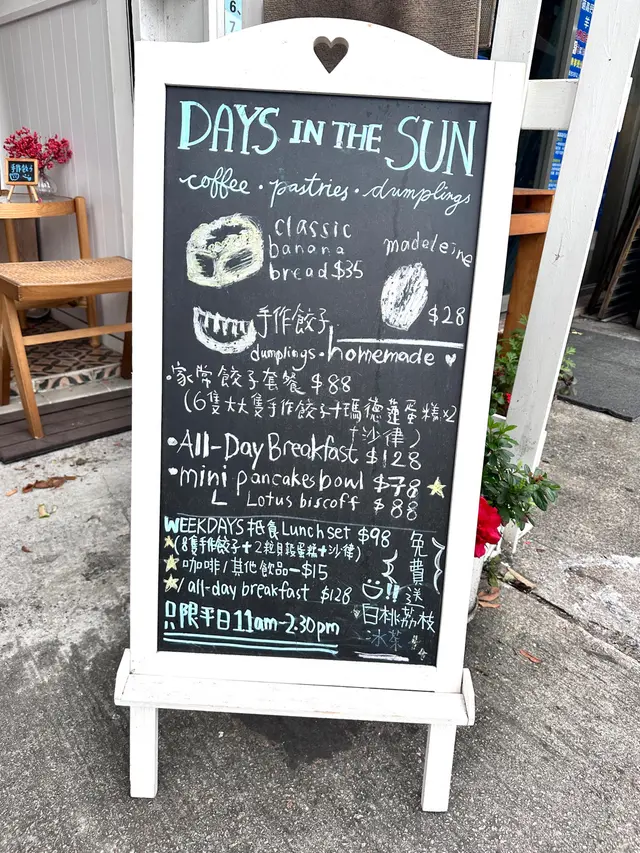 6.
7
DAYS IN THE SUN
coffee · pastries · dumplings
classic
banana
bread $35
madeleine
$28
手作餃子
dumplings · homemade
·家常餃子套餐 $88
(6隻大大隻手作餃子+瑪德蓮蛋糕x2
+沙律)
·All-Day Breakfast $128
·mini pancakes bowl $78
Lotus biscoff $88
WEEKDAYS 抵食 Lunch set $98
(8隻手作餃子+2粒貝殼蛋糕+沙律)
咖啡/其他飲品 -$15
/all-day breakfast $128
只限平日11am-2.30pm
免費送
!!
白桃荔枝
冰茶